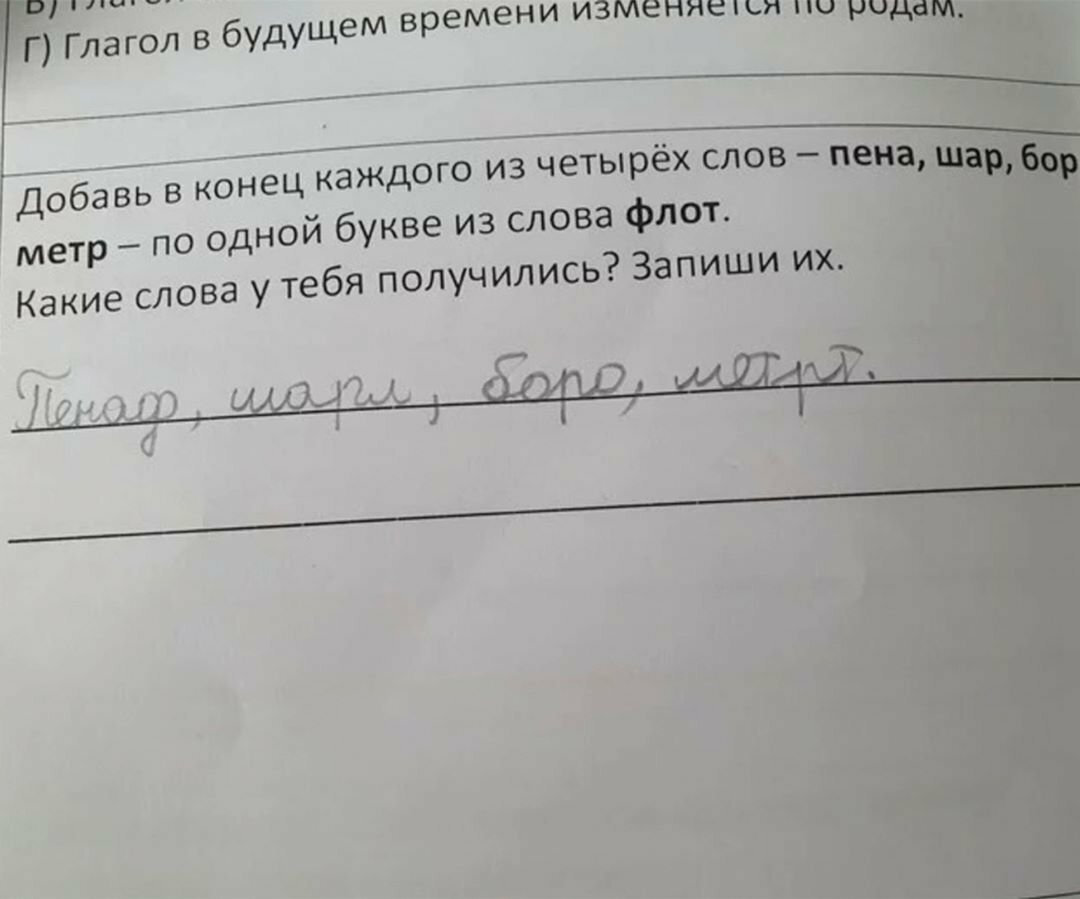 Г) Глагол в будущем времени изменяется по родам.
Добавь в конец каждого из четырёх слов – пена, шар, бор
метр – по одной букве из слова флот.
Какие слова у тебя получились? Запиши их.
Пенаф, шарл, боро, метрт.